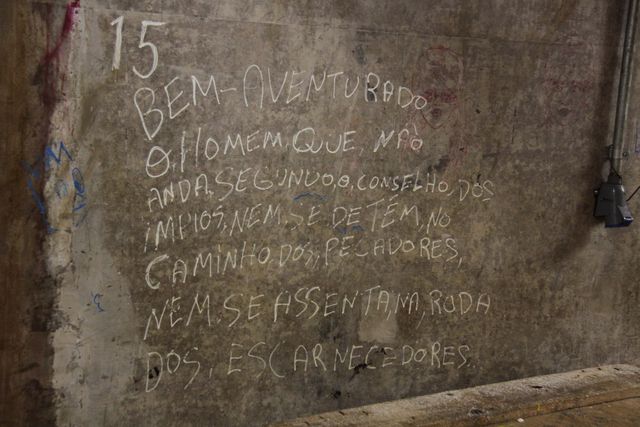 15
BEM-AVENTURADO
O, HOMEM, QUE, NÃO
ANDA, SEGUNDO, O, CONSELHO, DOS
ÍMPIOS, NEM, SE DETÉM, NO
CAMINHO, DOS, PECADORES,
NEM, SE ASSENTA, NA, RODA
DOS, ESCARNECEDORES